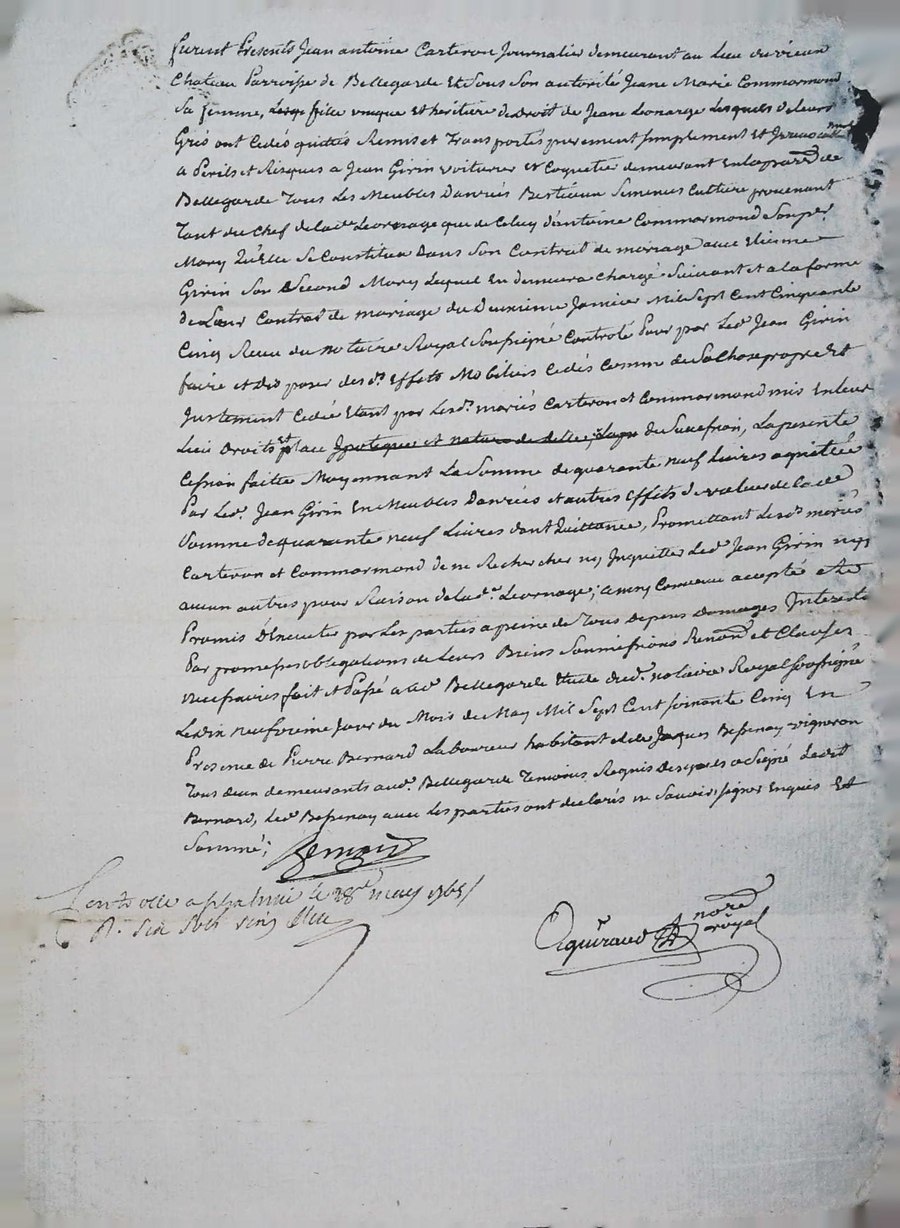 furent Presents Jean antoine Carteron Journalier demeurant au Lieu du vieux
Chateau Parroisse de Bellegarde Et Sous Son autorité Jeane Marie Commarmond
Sa femme, fille unique et héritiere de Droit de Jeane Leornage Lesquels de Leurs
Grés ont Cedés quittés Remis et Transportés purement simplement Et
a Périls et Risques a Jean Girin voiturier et Coquetier demeurant En la parr.se de
Bellegarde Tous Les Meubles Danrées Bestiaux Semences Culture provenant
Tant du Chef de lad. Leornage que de Celuy d'antoine Commarmond Son per
Mary Qu'Elle Se Constitua Dans Son Contrat de mariage avec Etienne
Girin Son Second Mary Lequel En demeura Chargé Suivant et a la forme
de Leur Contrat de mariage du Deuxieme Janvier Mil Sept Cent Cinquante
Cinq Receu du notaire Royal Soussigné Controlé Pour par Led. Jean Girin
faire et Disposer des d. Effets Mobiliers Cedés Comme de Sa Chose propre Et
Justement Cedée Etant par Lesd. mariés Carteron et Commarmond mis En leur
Lieu Droits et place Ipoteques et nature de dette, du Surefrois, La presente
Cession faitte Moyennant La Somme de quarante neuf Livres aquittée
Par Led. Jean Girin En Meubles Danrées et autres Effets de valeur de la de
Somme de quarante neuf Livres dont Quittance, Promettant Lesd. mariés
Carteron et Commarmond de ne Rechercher ny Inquietter Led. Jean Girin ny
aucun autres pour Raison de lad. Leornage; ainsy Convenu accepté Et
Promis d'Executer par Les parties a peine de Tous Depens Domages Interests
Par promesses obligations de Leurs Biens Soumissions Renond. et Clauses
necessaires fait et Passé aud. Bellegarde Etude dud. notaire Royal Soussigné
Le Dix neufvieme Jour du Mois de May Mil Sept Cent soixante Cinq En
Presence de Pierre Bernard Laboureur habitant et de Jaques Bessenay vigneron
Tous deux demeurants aud. Bellegarde Temoins Requis desquels a Signé Ledit
Bernard, Led. Bessenay avec Les parties ont declarés ne Savoir signer Enquis Et
Sommé;
Bernard
a le 28e may 1765
R. Six Sols
Aguiraud nore royal